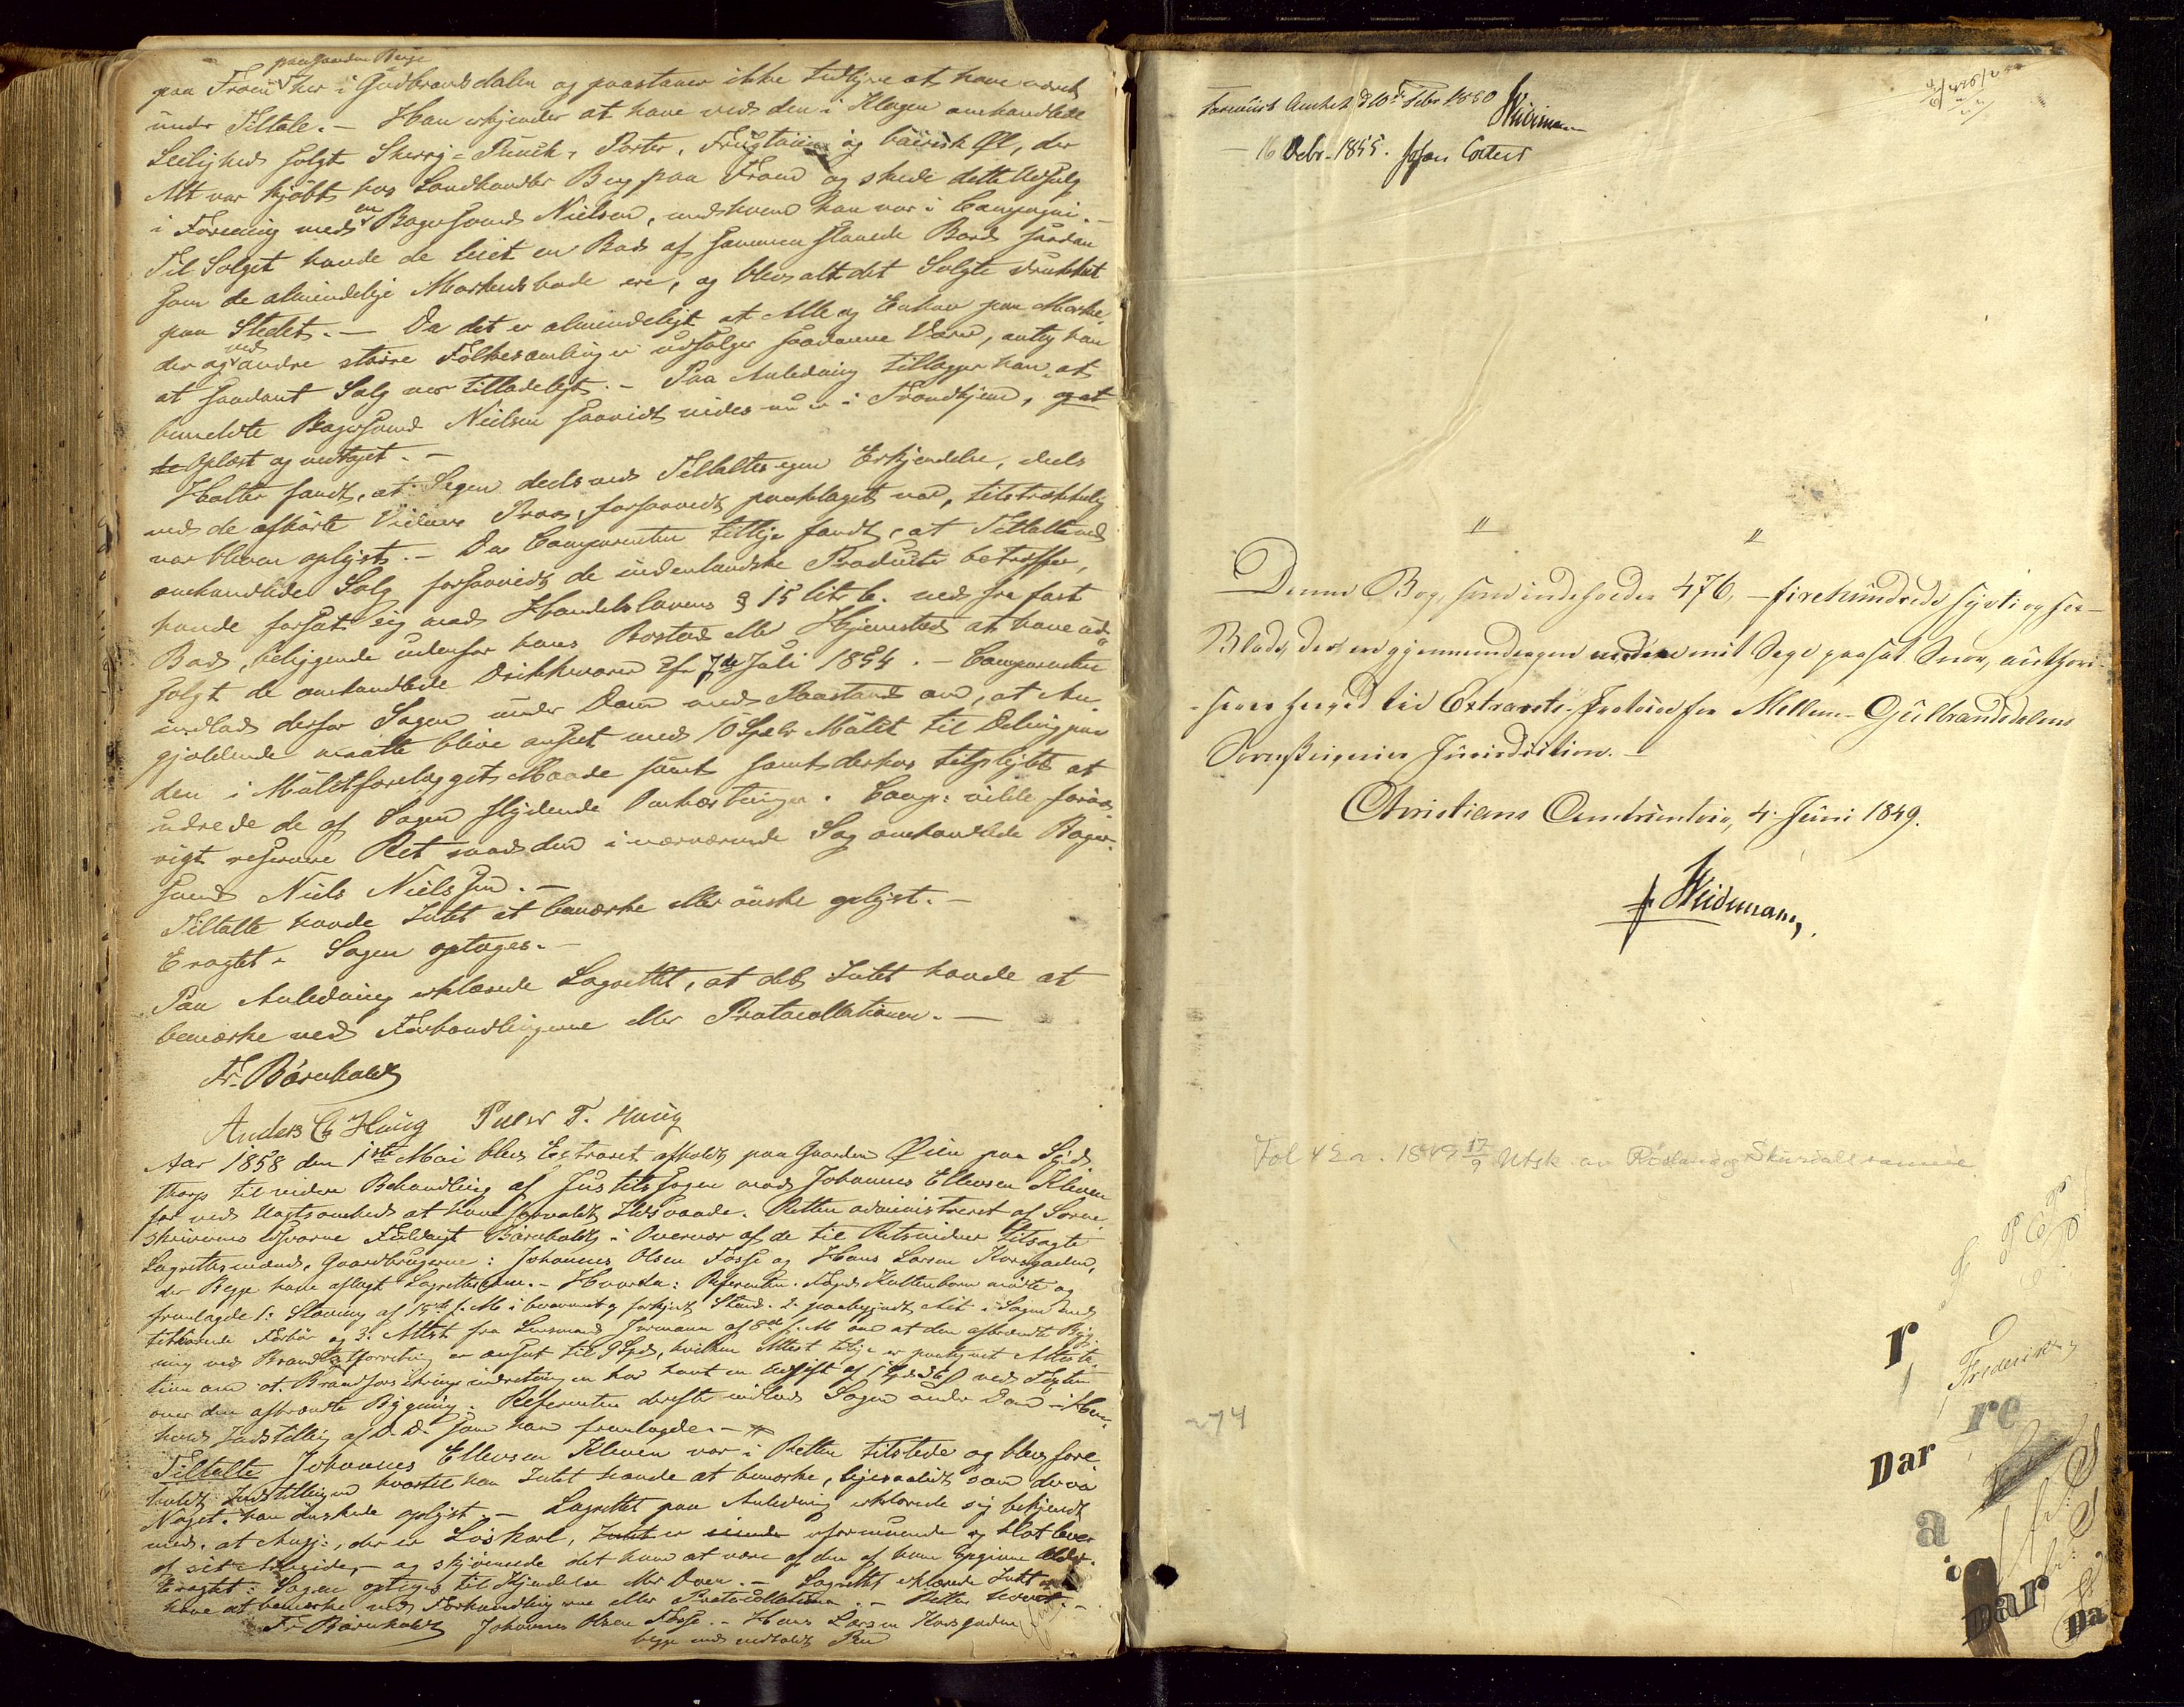 paasanden Berge
paa Fron her i Gudbrandsdalen og paastaaer ikke tidligere at have været
under Tiltale. – Han erkjender at have ved den i Klagen omhandlede
Leilighed solgt Sherry-Punch, Porter, Frugtviin og baiersk Øl, der
Alt var kjøbt hos Landhandler Berg paa Fron og skede dette Udsalg
i Forening med en Bagersvend Nielsen, med hvem han var i Compagni. –
Til Salget havde de leiet en Bod af sammenslaaede Bord saadan
som de almindelige Markedsbode ere, og blev alt det Solgte drukket
paa Stedet. – Da det er almindeligt at Alle og Enhver paa Marke-
der og ved andre større Folkesamlinger udsælger saadanne Varer, antog han
at saadant Salg var tilladeligt. – Paa Anledning tillægger han, at
bemeldte Bagersvend Nielsen saavidt vides nu er i Trondhjem, og at
Oplæst og vedtaget. –
Hatten fandt, at Sagen deels ved Tiltaltes egen Erkjendelse, deels
ved de afhørte Vidners Prov, forsaavidt paaklaget var, tilstrækkelig
var bleven oplyst. – Da Comparenten tillige fandt, at Tiltalte ved
omhandlede Salg forsaavidt de indenlandske Producter betræffer,
havde forseet sig mod Handelslovens § 15 litr. b. ved fra fast
Bod, beliggende udenfor hans Bosted eller Hjemsted at have ud-
solgt de omhandlede Drikkevarer cfr 7de Juli 1854. – Comparenten
indlod derfor Sagen under Dom med Paastand om, at An-
gjældende maatte blive anseet med 10 Spdlr Mulct til Deling paa
den i Mulctforelægget Maade samt derhos tilpligtet at
udrede de af Sagen flydende Omkostninger. Comp: vilde forøv-
rigt reservere Ret mod den i nærværende Sag omhandlede Bager-
svend Niels Nielssen. –
Tiltalte havde Intet at bemærke eller ønske oplyst. –
Eragtet: Sagen optages. –
Paa Anledning erklærede Lagrettet, at det Intet havde at
bemærke ved Forhandlingerne eller Protocollationen. –
Fr. Barnholdt
Anders C Haug Peder T. Haug
Aar 1858 den 1ste Mai blev Extraret afholdt paa Gaarden Øien paa
Thorp til videre Behandling af Justitssagen mod Johannes Ellevsen Kleven
for ved Uagtsomhed at have forvoldt Ildsvaade. Retten administreret af Soren-
skriverens Edsvorne Fuldmægt Barnholdt i Overvær af de til Retsvidner tilsagte
Lagrettesmænd, Gaardbrugerne: Johannes Olsen Fosse og Hans Larsen Korsgaden,
der Begge have aflagt Lagretteseden. – Hvorda: Referenten, Foged Kaltenborn mødte og
fremlagde 1: Stævning af 15de f. M. i bevaret og forkyndt Stand. 2. paabegyndt Act i Sagen med
tilhørende Forhør og 3. Attest fra Lensmand Jormann af 8de f. M. om at den afbrændte Byg-
ning ved Brandtaxtforretning er anseet til 9 Spd, hvilken Attest tillige er paategnet Attesta-
tion om at Brandforsikringsindretningen har havt en Udgift af 1 Spd 36 ß ved Taxten
over den afbrændte Bygning. Referenten derefter indlod Sagen under Dom i Hen-
hold Indstilling af D. D. som han fremlagde. –
Tiltalte Johannes Ellevsen Kleven var i Retten tilstede og blev fore-
holdt Indstillingen hvortil han Intet havde at bemærke, ligesaalidt som der var
Noget han ønskede oplyst. – Lagrettet paa Anledning erklærede sig bekjendt
med, at Angj:, der er Løskarl, er uformuende og blot lever
af sit Arbeide, – og skjønnede det ham at være af den af ham opgivne Alder.
Eragtet: Sagen optages til Kjendelse eller Dom. – Lagrettet erklærede Intet at
have at bemærke ved Forhandlingerne eller Protocollationen. – Retten hævet. –
Fr. Barnholdt Johannes Olsen Fosse. – Hans Larsen Korsgaden
begge med iholdt Pen
Foreviist Amtet d. 10de Febr 1850 Weidemann
– 16 Octbr. 1855. Johan Collett
" "
Denne Bog, som indeholder 476, – firehundrede sytti og sex –
Blade, der ere gjennemdragne med en mit Segl paasat Snor, authori-
seres herved til Extrarets-Protocol for Mellem-Gulbrandsdalens
Sorenskriveries Jurisdiction. –
Christians Amtscontoir, 4. Juni 1849.
Weidemann,
Fol 42 a. 1849 17/9 Utsk. av Rosland og Skurdall sameie
274
r
Frederik
re
Dar
a
Dar
Da